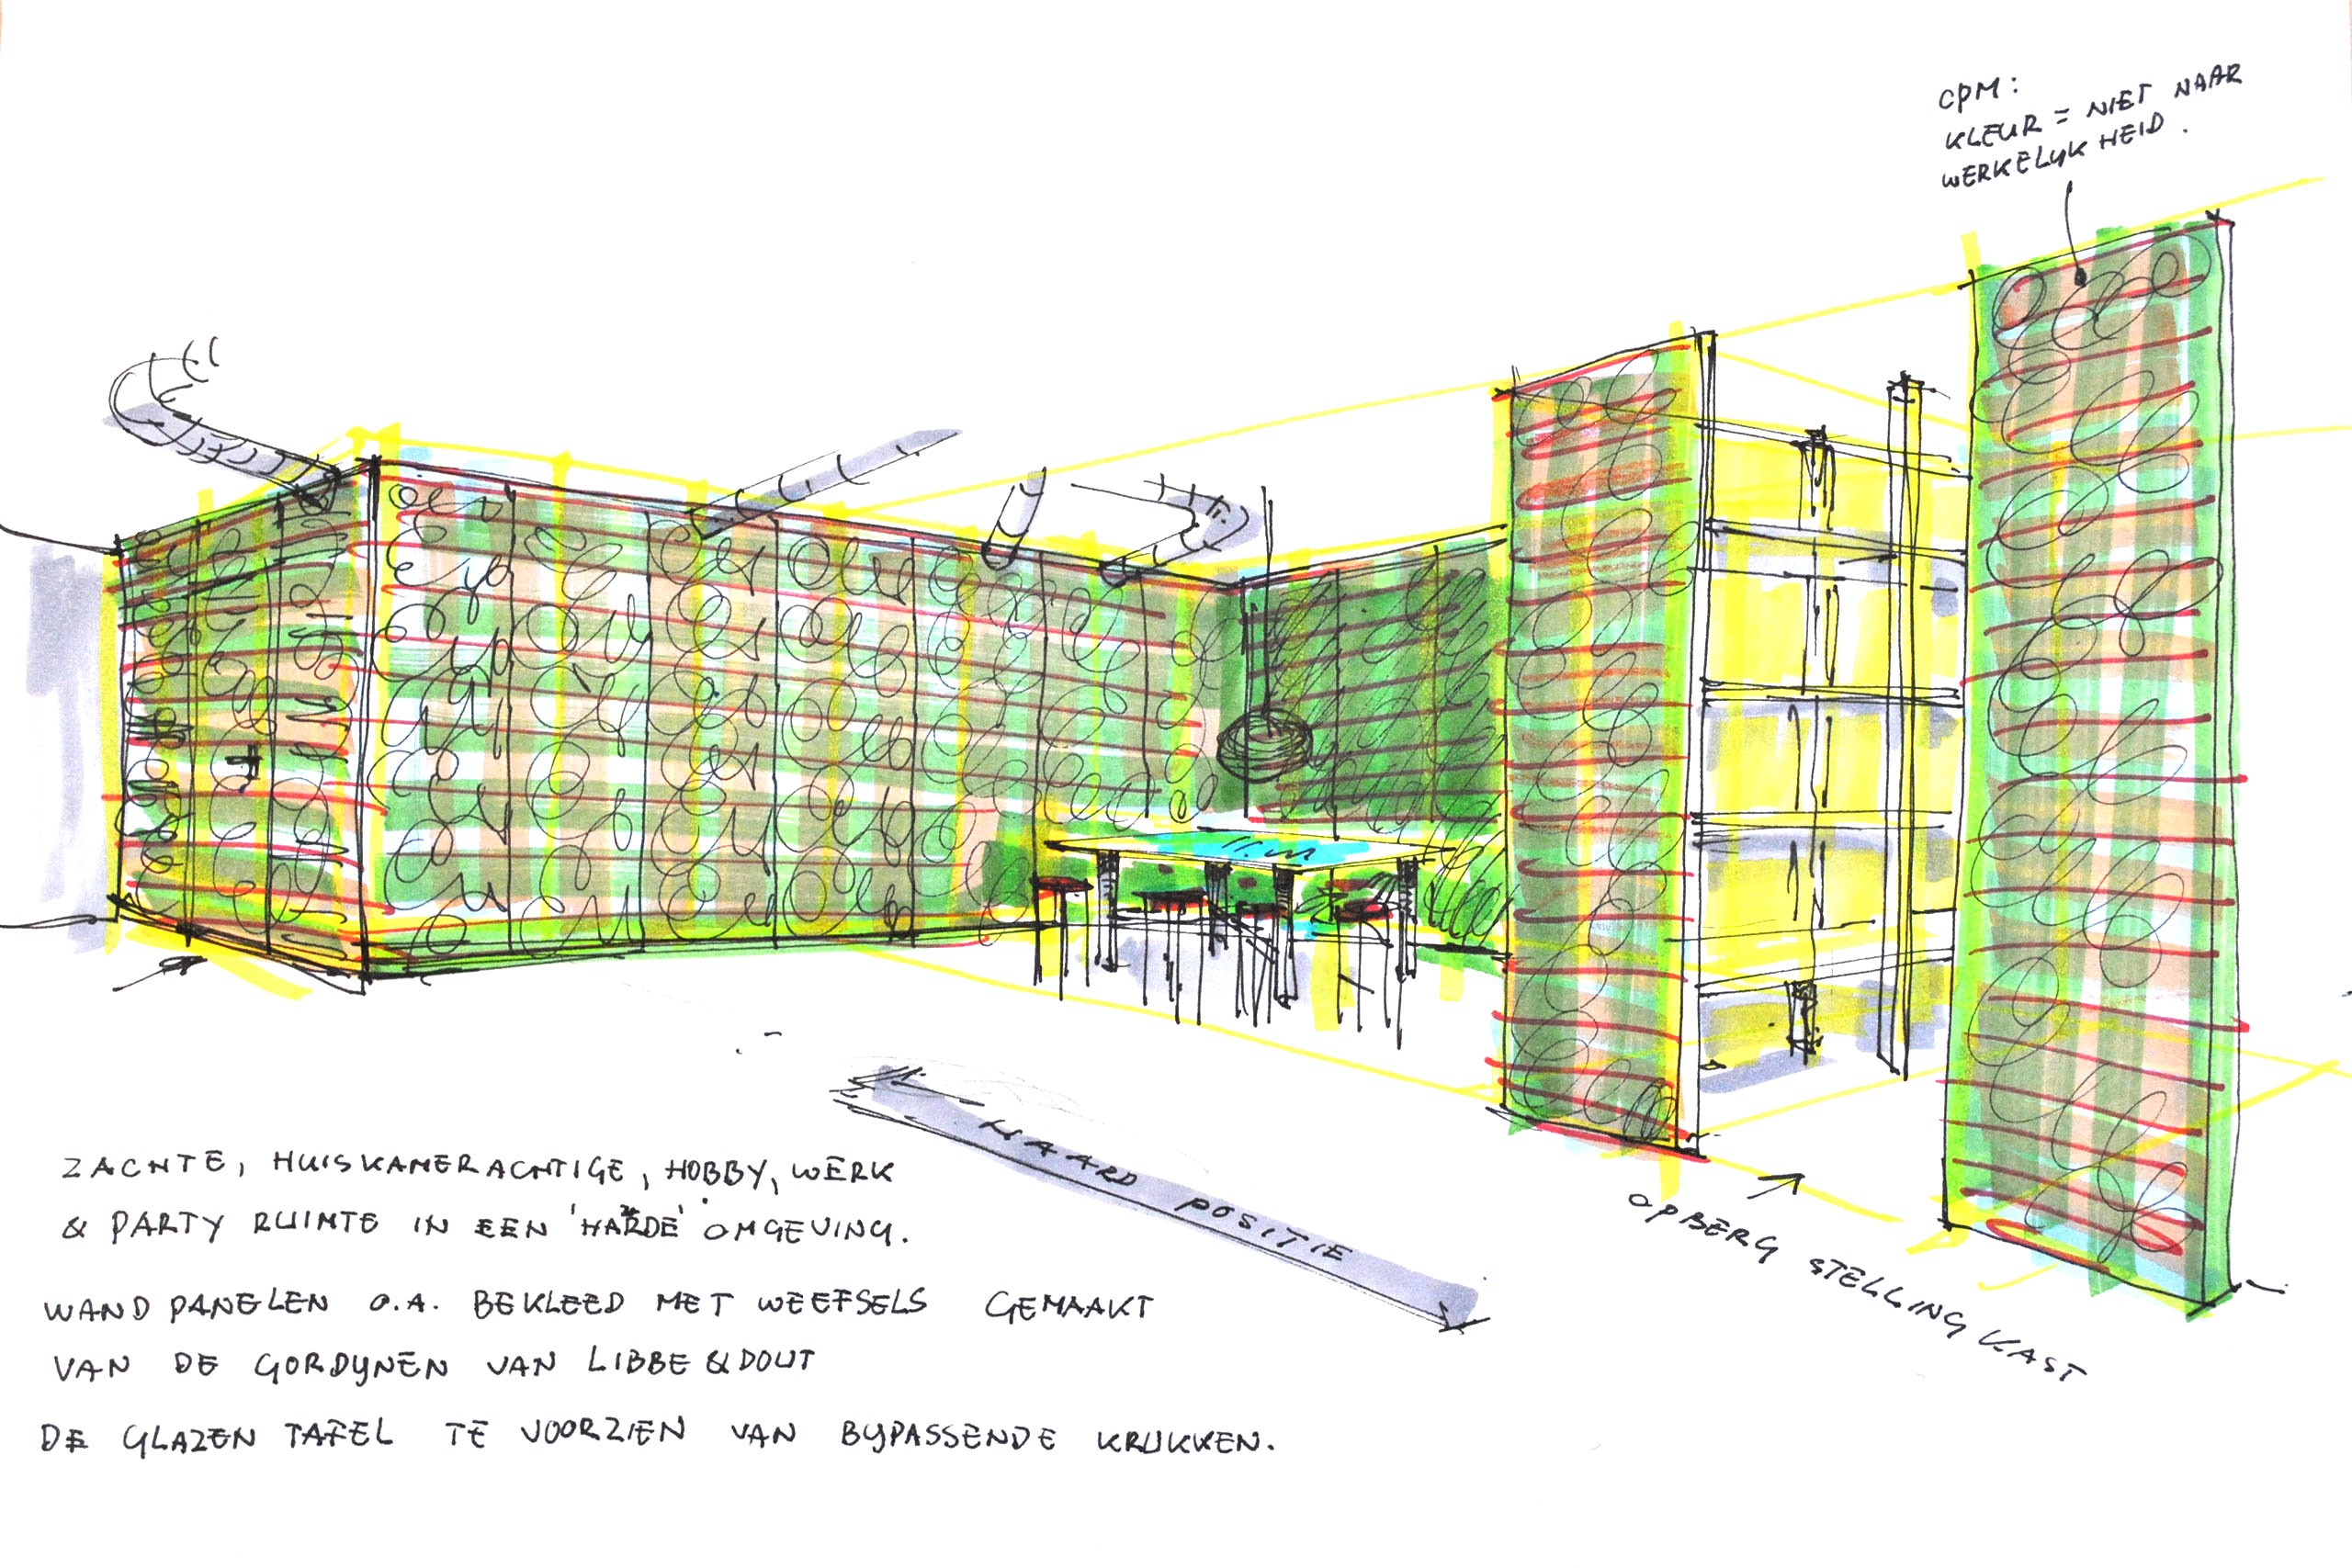 CPM:
KLEUR = NIET NAAR
WERKELYKHEID.
HAARD POSITIE
OPBERG STELLING KAST
ZACHTE, HUISKAMERACHTIGE, HOBBY, WERK
& PARTY RUIMTE IN EEN 'HARDE' OMGEVING.
WAND PANELEN O.A. BEKLEED MET WEEFSELS GEMAAKT
VAN DE GORDYNEN VAN LIBBE & DOUT
DE GLAZEN TAFEL TE VOORZIEN VAN BYPASSENDE KRUKKEN.